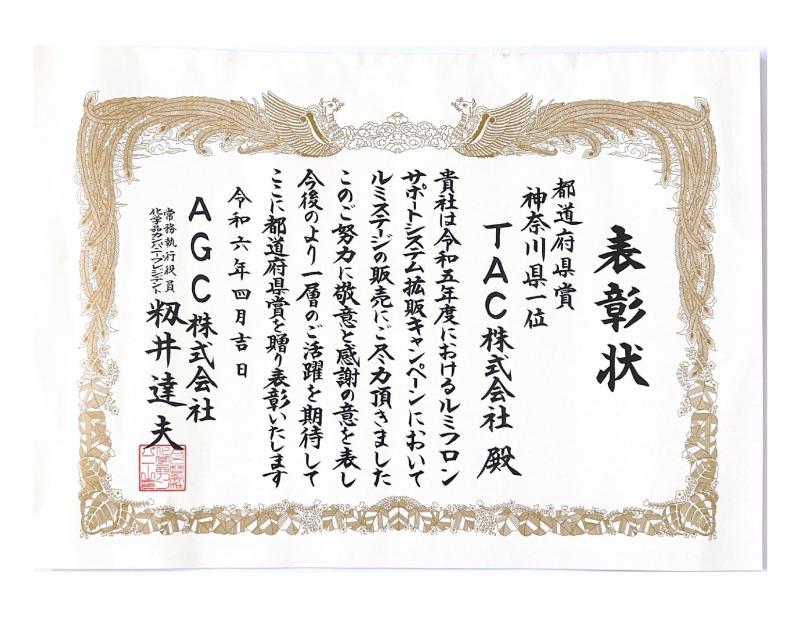 表彰状
都道府県賞
神奈川県一位
TAC株式会社 殿
貴社は令和五年度におけるルミフロン
サポートシステム拡販キャンペーンにおいて
ルミステージの販売にご尽力頂きました
このご努力に敬意と感謝の意を表し
今後のより一層のご活躍を期待して
ここに都道府県賞を贈り表彰いたします
令和六年四月吉日
AGC株式会社
常務執行役員
化学品カンパニープレジデント
籾井達夫